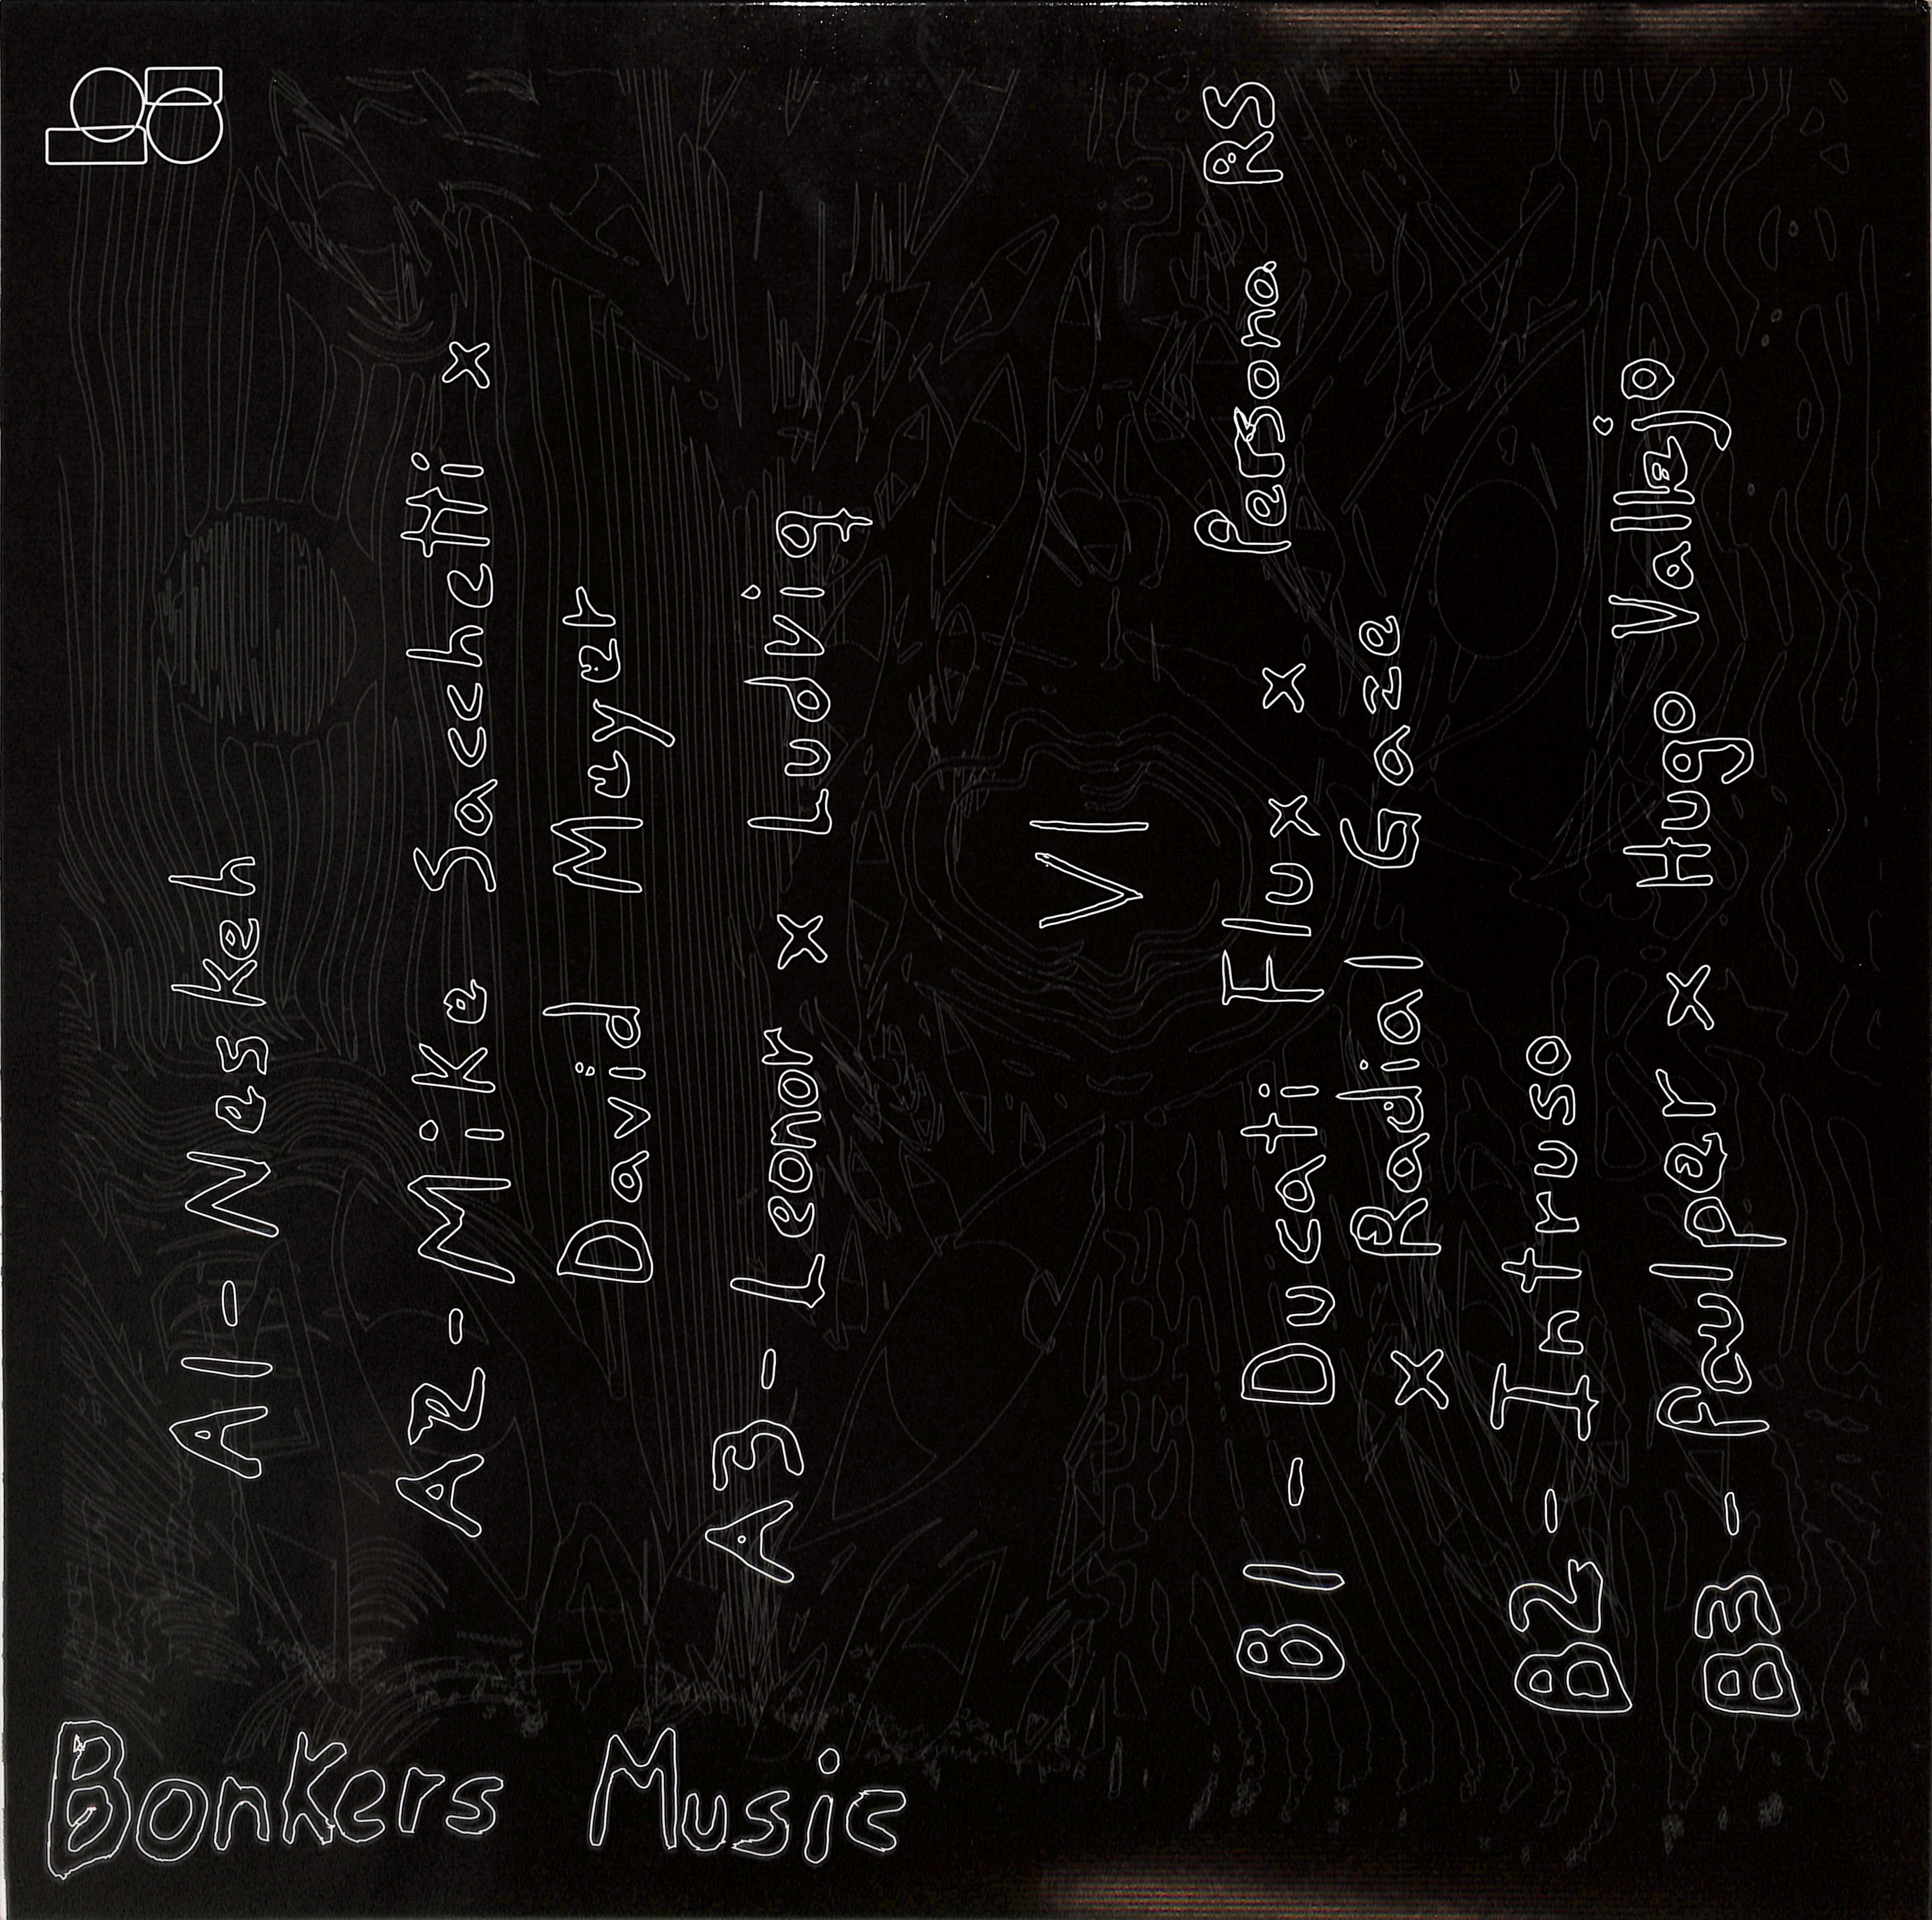 A1 - Neskeh
A2 - Mike Sacchetti x
David Mayer
A3 - Leonor x Ludvig
VI
B1 - Ducati Flux x Persona RS
x Radial Gaze
B2 - Intruso
B3 - Paulper x Hugo Vallejo
Bonkers Music